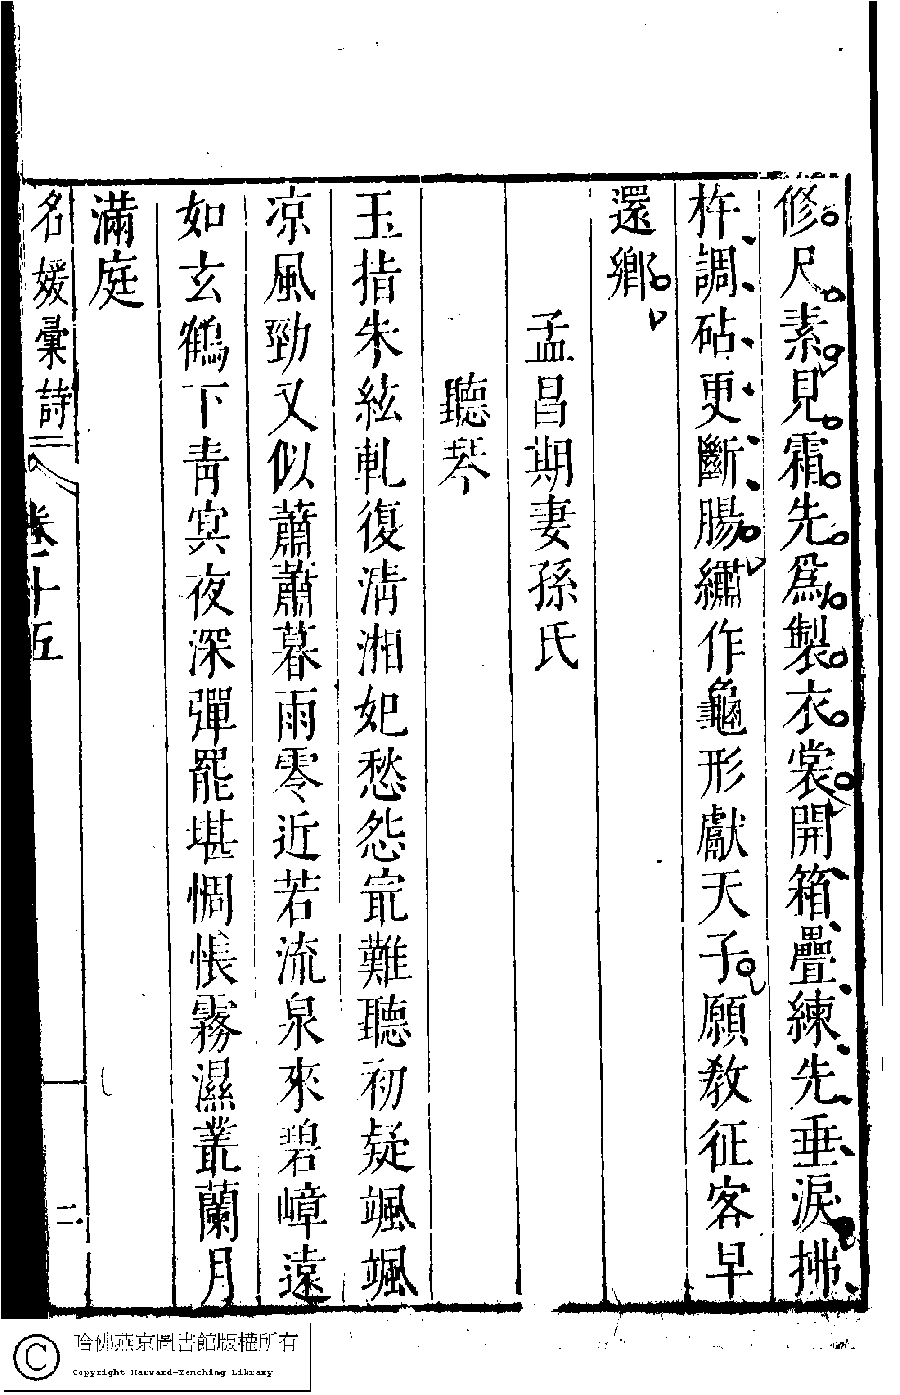 修尺素見霜先爲製衣裳開箱疊練先垂淚拂
杵調砧更斷腸繡作龜形獻天子願敎征客早
還鄉
孟昌期妻孫氏
聽琴
玉指朱絃軋復淸湘妃愁怨㝡難聽初疑颯颯
凉風勁又似蕭蕭暮雨零近若流泉來碧嶂遠
如玄鶴下靑冥夜深彈罷堪惆悵霧濕叢蘭月
滿庭
名媛彙詩
卷十五
二
哈佛燕京圖書館版權所有
Copyright Harvard-Yenching Library